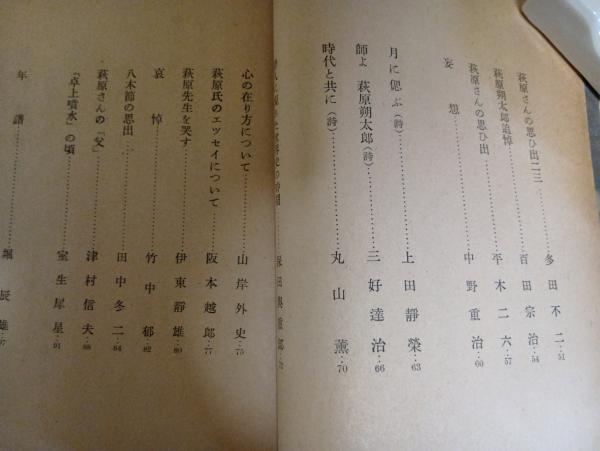 萩原さんの思ひ出二三……多田不二…51
萩原朔太郎追悼……百田宗治…54
萩原さんの思ひ出……平木二六…57
妄想……中野重治…60
月に偲ぶ（詩）……上田靜榮…63
師よ 萩原朔太郎（詩）……三好達治…66
時代と共に（詩）……丸山薫…70
保田與重郎
心の在り方について……山岸外史…75
萩原氏のエッセイについて……阪本越郎…77
萩原先生を哭す……伊東靜雄…80
哀悼……竹中郁…82
八木節の思出……田中冬二…84
萩原さんの「父」……津村信夫…88
「卓上噴水」の頃……室生犀星…91
年譜……堀辰雄